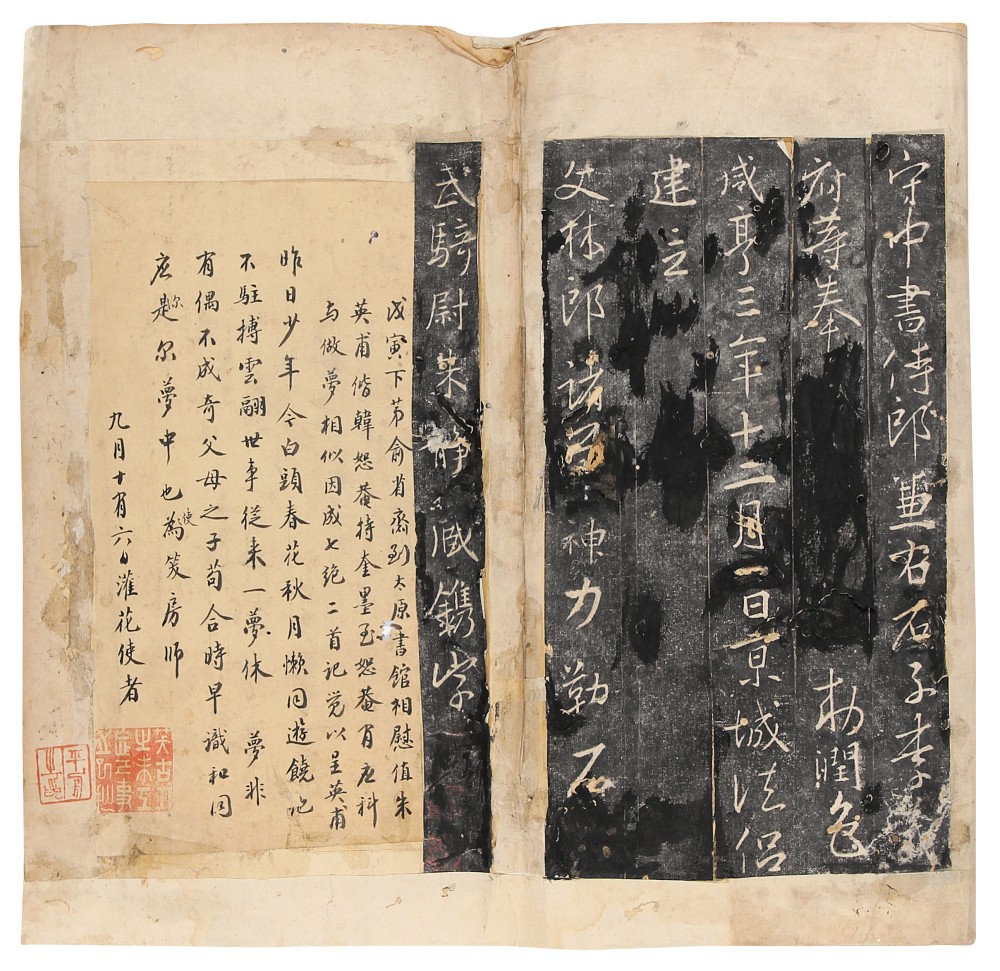 守中書侍郎兼右石子李
府等奉　勑潤色
咸亨三年十二月一日京城法侣
建立
文林郎諸神力勒石
武騎尉朱静藏鐫字
戊寅下苐俞省齋到太原書館相慰值朱
英甫偕韓恕菴持奎墨至恕菴有應科
与做夢相似因成七絶二首記覚以呈英甫
昨日少年今白頭春花秋月懶同遊饒他
不駐摶雲翮世事從来一夢休　夢非
有偶不成奇父母之子苟合時早識和同
应是尔尔夢中也使為笈房师
九月十有六日灌花使者